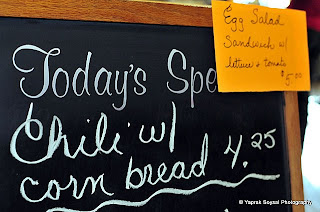 Today's Spe
Chili w/
corn bread 4.25
Egg Salad
Sandwich w/
lettuce & tomato
$5.00
© Yaprak Soysal Photography